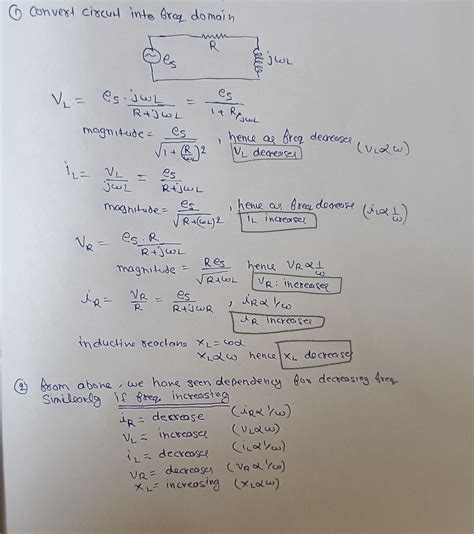 ① Convert circuit into freq domain
R
es
jωL
VL = es·jωL / R+jωL = es / 1+ R/jωL
magnitude = es / √1+(R/ωL)2 , hence as freq decreases VL decreases (VL∝ω)
iL = VL / jωL = es / R+jωL
magnitude = es / √R+(ωL)2 , hence as freq decrease iL increases (iL∝1/ω)
VR = es.R / R+jωL
magnitude = Res / √R+ωL hence VR∝1/ω VR: increases
iR = VR / R = es / R+jωR , iR∝1/ω
iR increases
inductive reactans XL=ωL
XL∝ω hence XL decrease
② from above, we have seen dependency for decreasing freq
Similearly if freq increasing
iR = decrease (iR∝1/ω)
VL = increases (VL∝ω)
iL = decreases (iL∝1/ω)
VR = decreases (VR∝1/ω)
XL = increasing (XL∝ω)